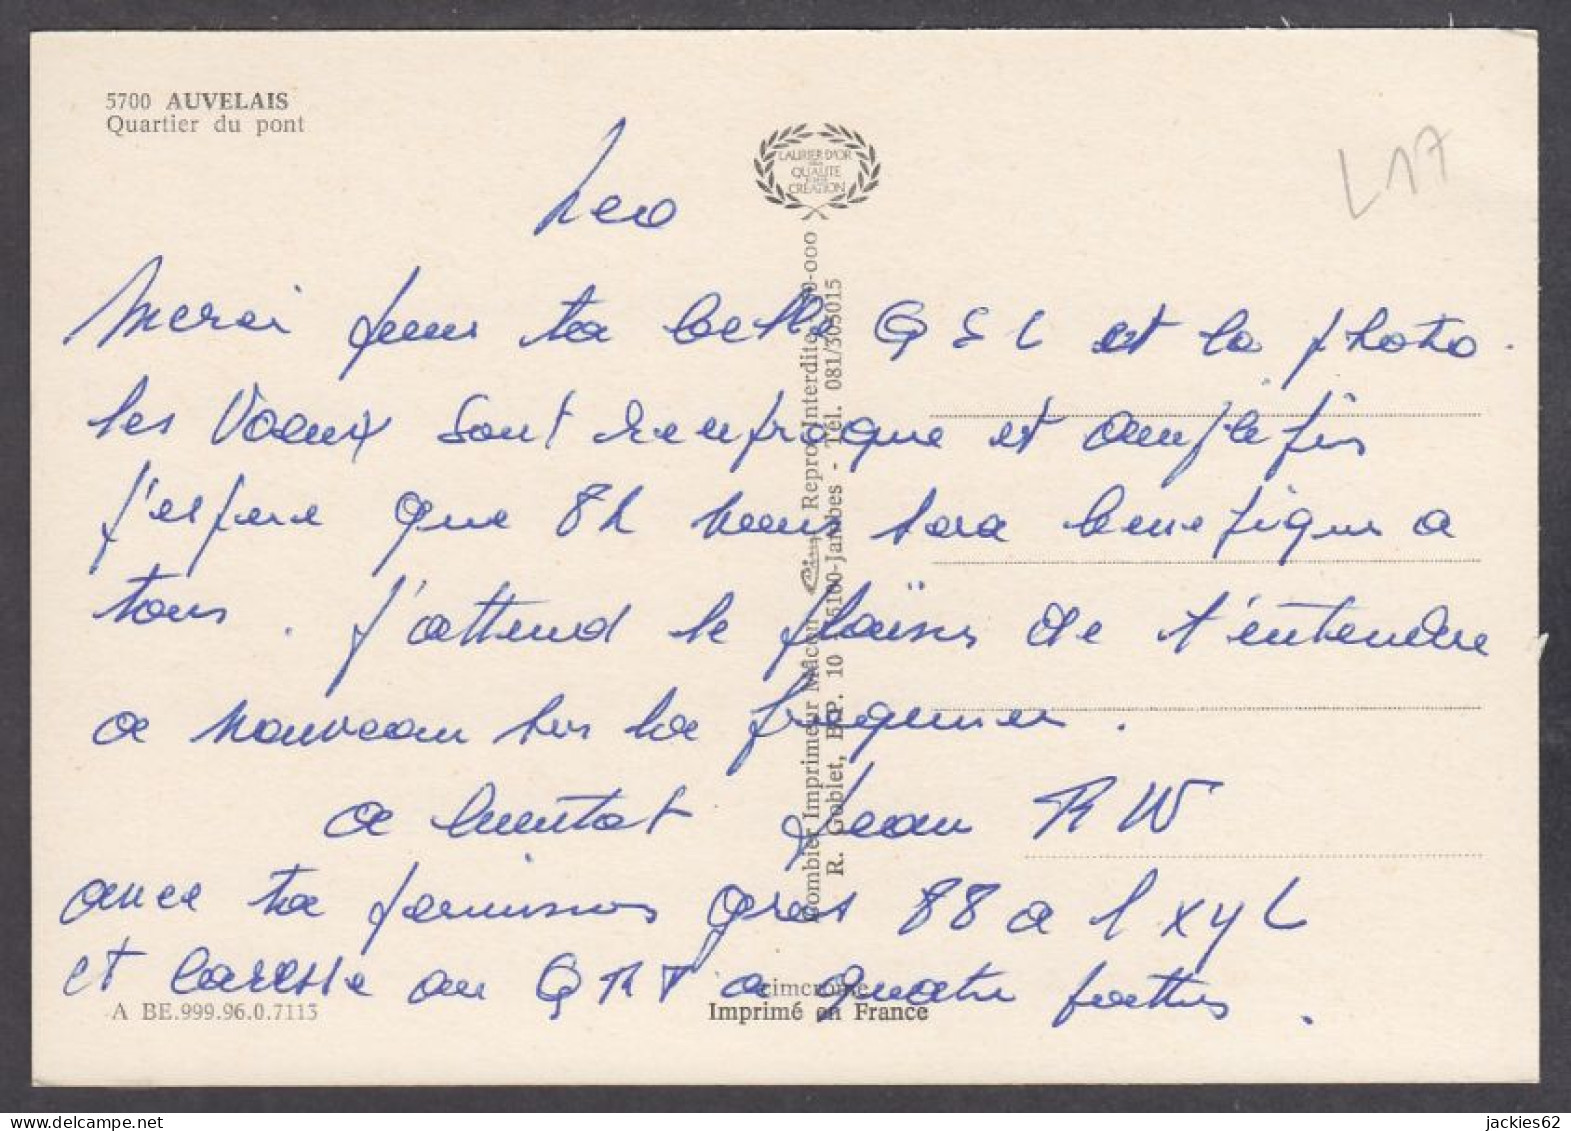 5700 AUVELAIS
Quartier du pont
LAURIER D'OR
DE LA
QUALITE
CREATION
L17
Leo
Merci pour ta belle QSL et la photo.
les Voeux sont reciproque et
j'espere que 82 nous sera benefique a
tous. J'attend le plaisir de t'entendre
a nouveau sur la frequence.
a bientot Jean RW
avec ta permission gros 88 a l xyL
et caresse au QRP a quatre pattes.
Combier Imprimeur Mâcon Cim Reprod. Interdite
R. Goblet, B.P. 10 - 5100-Jambes - Tél. 081/305015
cimcrome
A BE.999.96.0.7113
Imprimé en France
jackies62